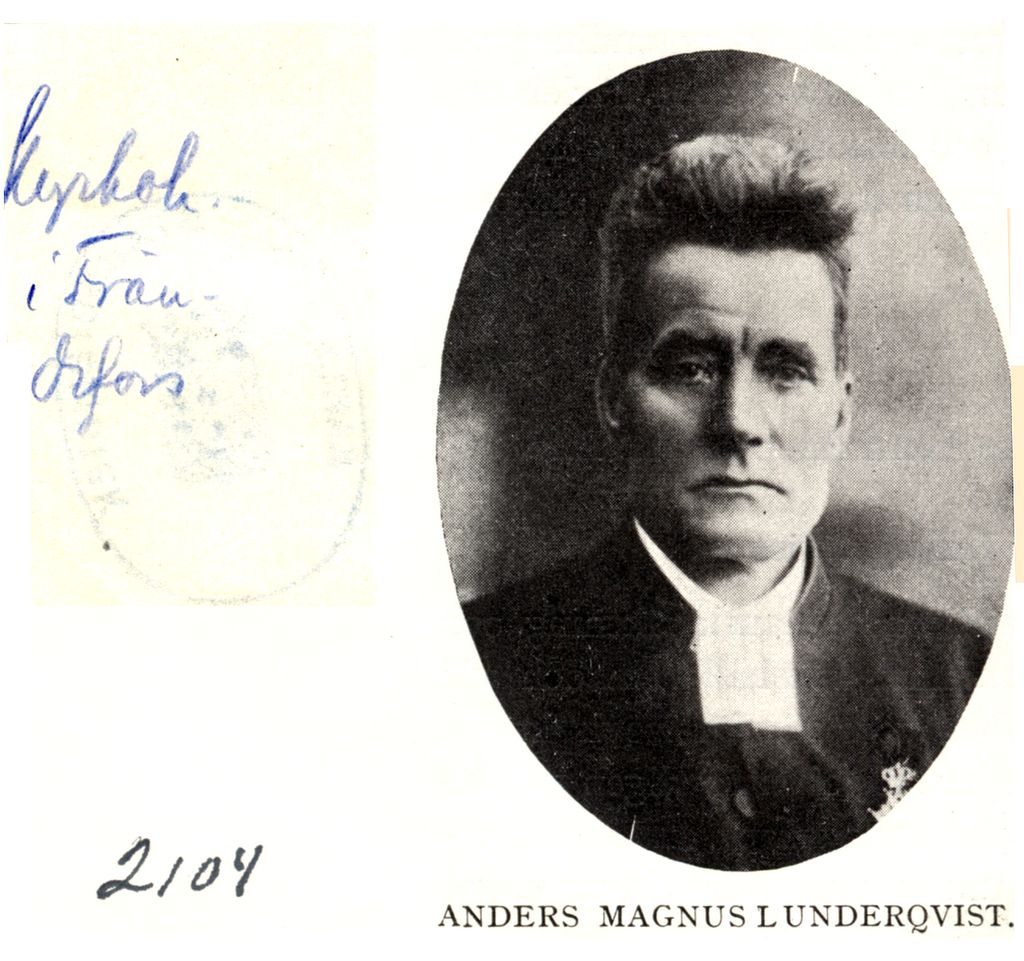 Kyrkoh.
i Frän-
defors
2104
ANDERS MAGNUS LUNDERQVIST.